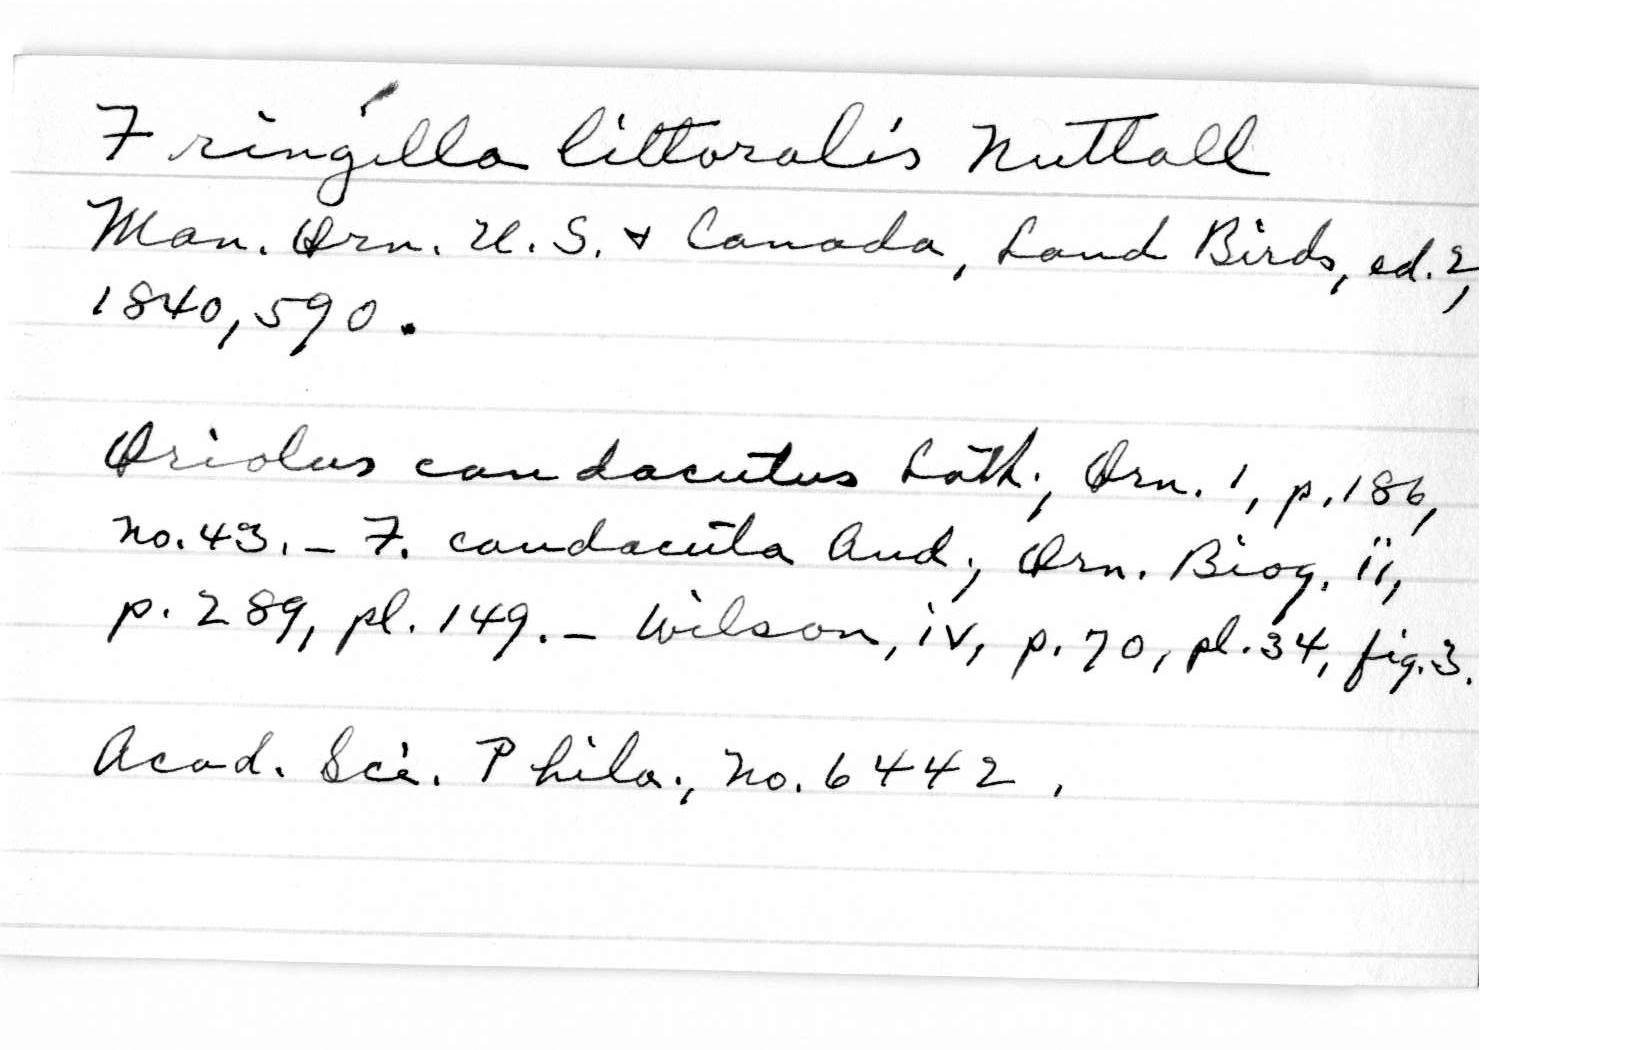 Fringilla littoralis Nuttall
Man. Orn. U.S. & Canada, Land Birds, ed. 2,
1840, 590.
Oriolus caudacutus Lath., Orn. 1, p. 186,
no. 43. – F. caudacuta Aud., Orn. Biog. ii,
p. 289, pl. 149. – Wilson, iv, p. 70, pl. 34, fig. 3.
Acad. Sci. Phila., no. 6442.